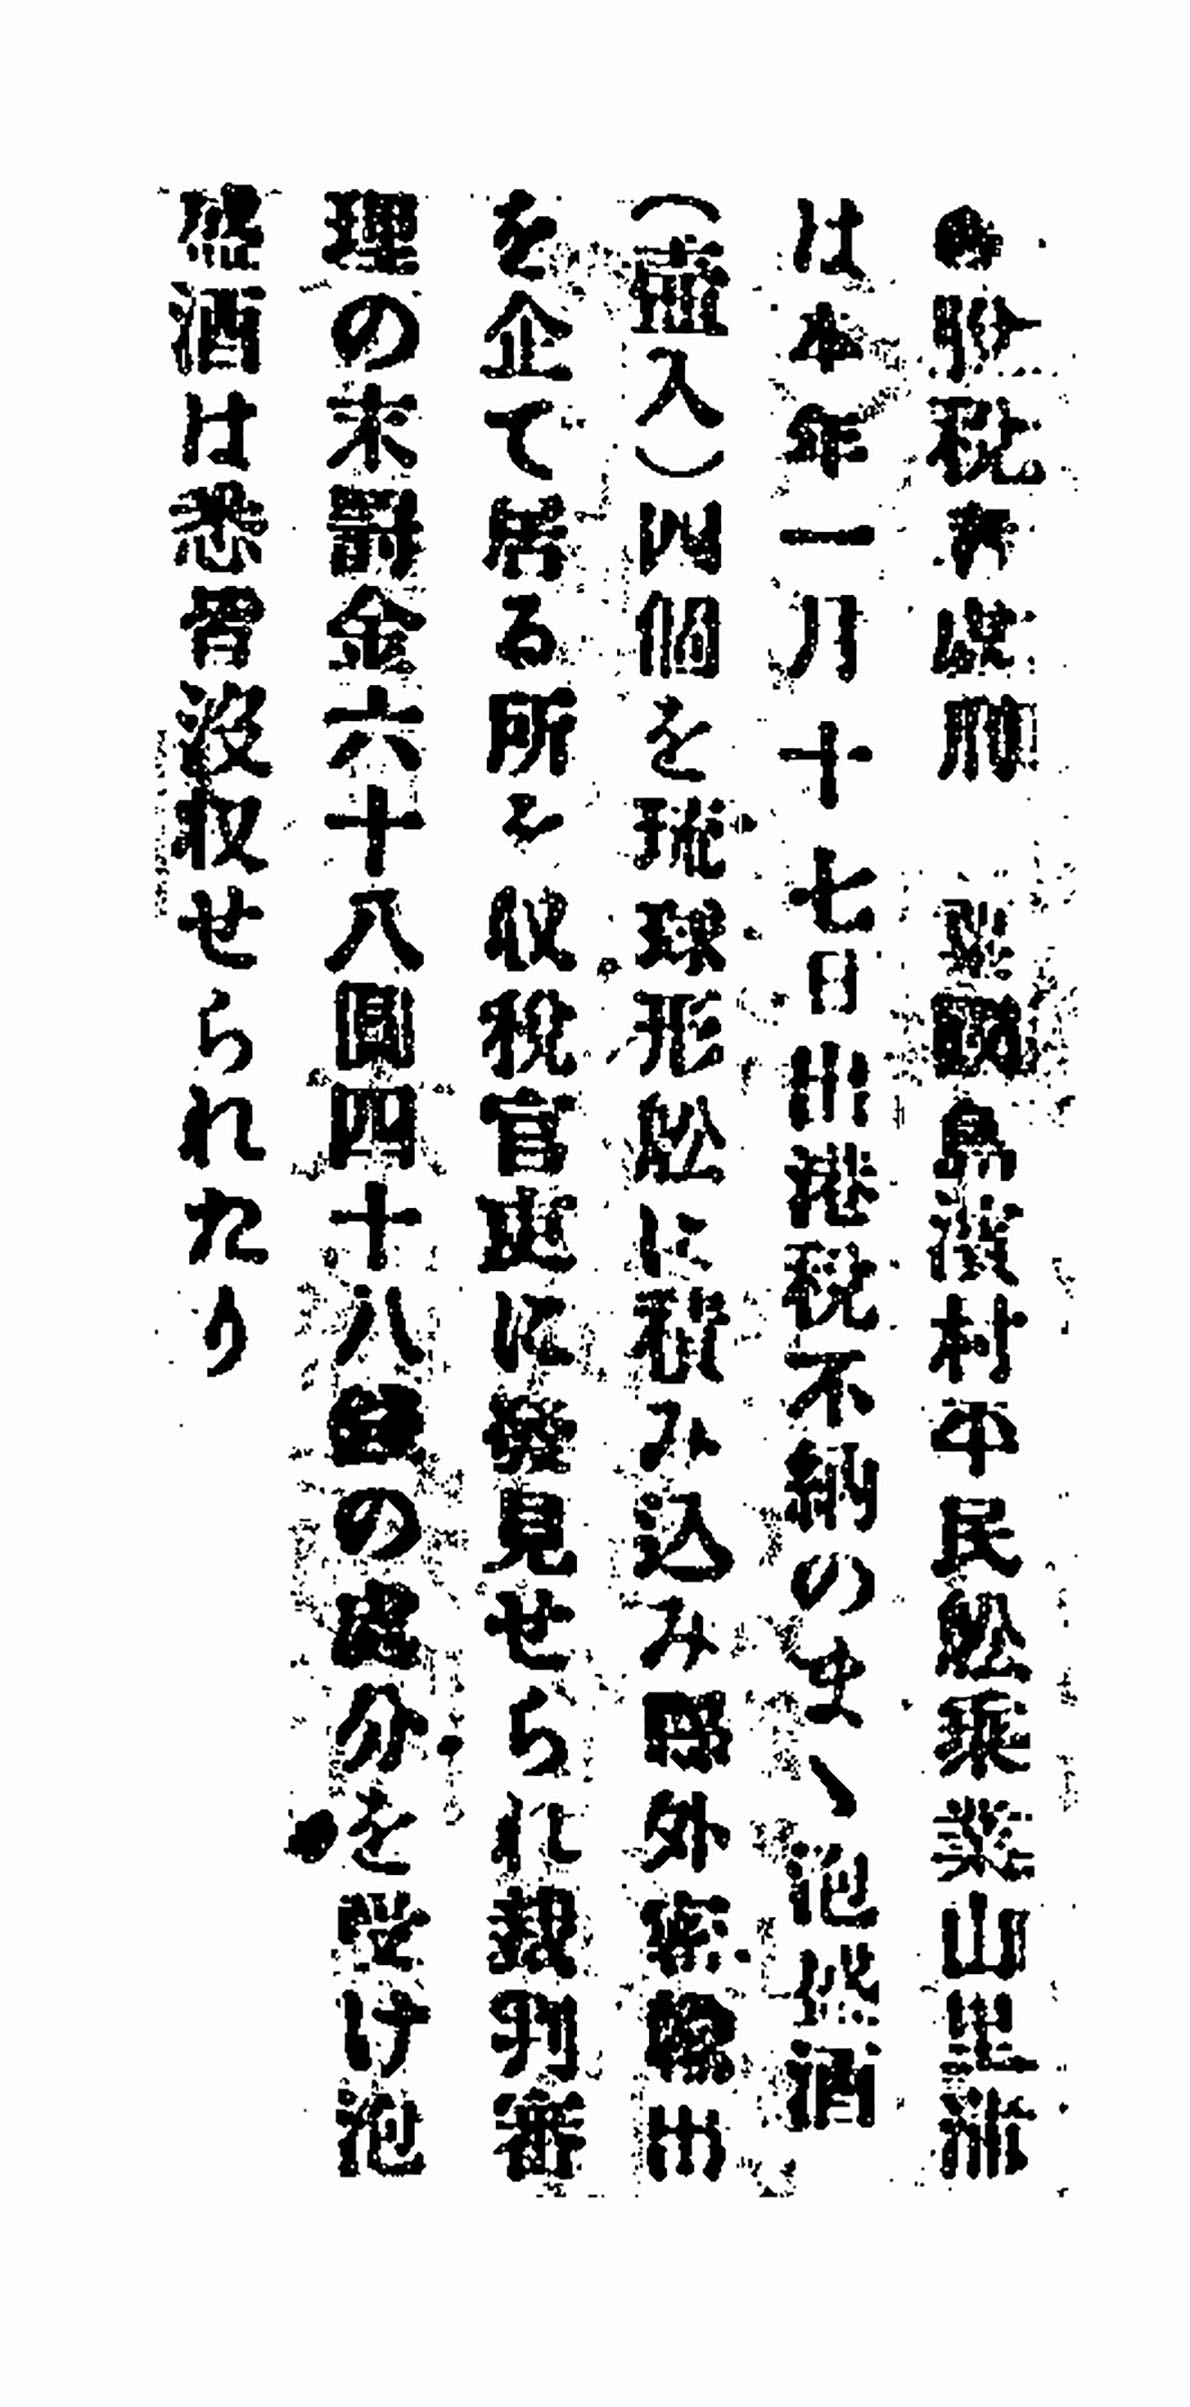 ●脱税者處刑 粟國島濱村平民舩乘業山里沸
は本年一月十七日出港税不納のまゝ泡盛酒
(壺入)四個を琉球形舩に積み込み縣外密輸出
を企て居る所を收税官吏に發見せられ裁判審
理の末罰金六十八圓四十八錢の處分を受け泡
盛酒は悉皆沒収せられたり